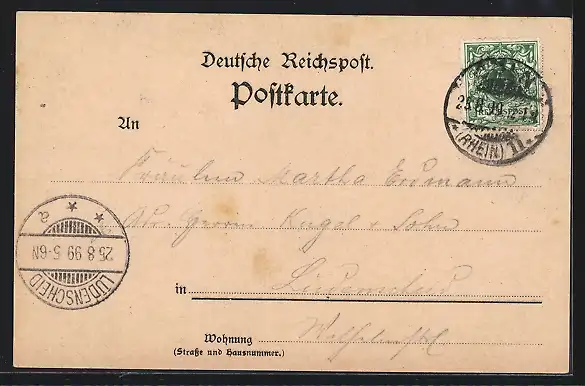 Deutsche Reichspost.
Postkarte.
25.8.99
(RHEIN)
An
Fräulein Martha Erdmann
Kugel & Sohn
LÜDENSCHEID
25.8.99 5-6N
a
in Lüdenscheid
Wohnung
(Straße und Hausnummer.)